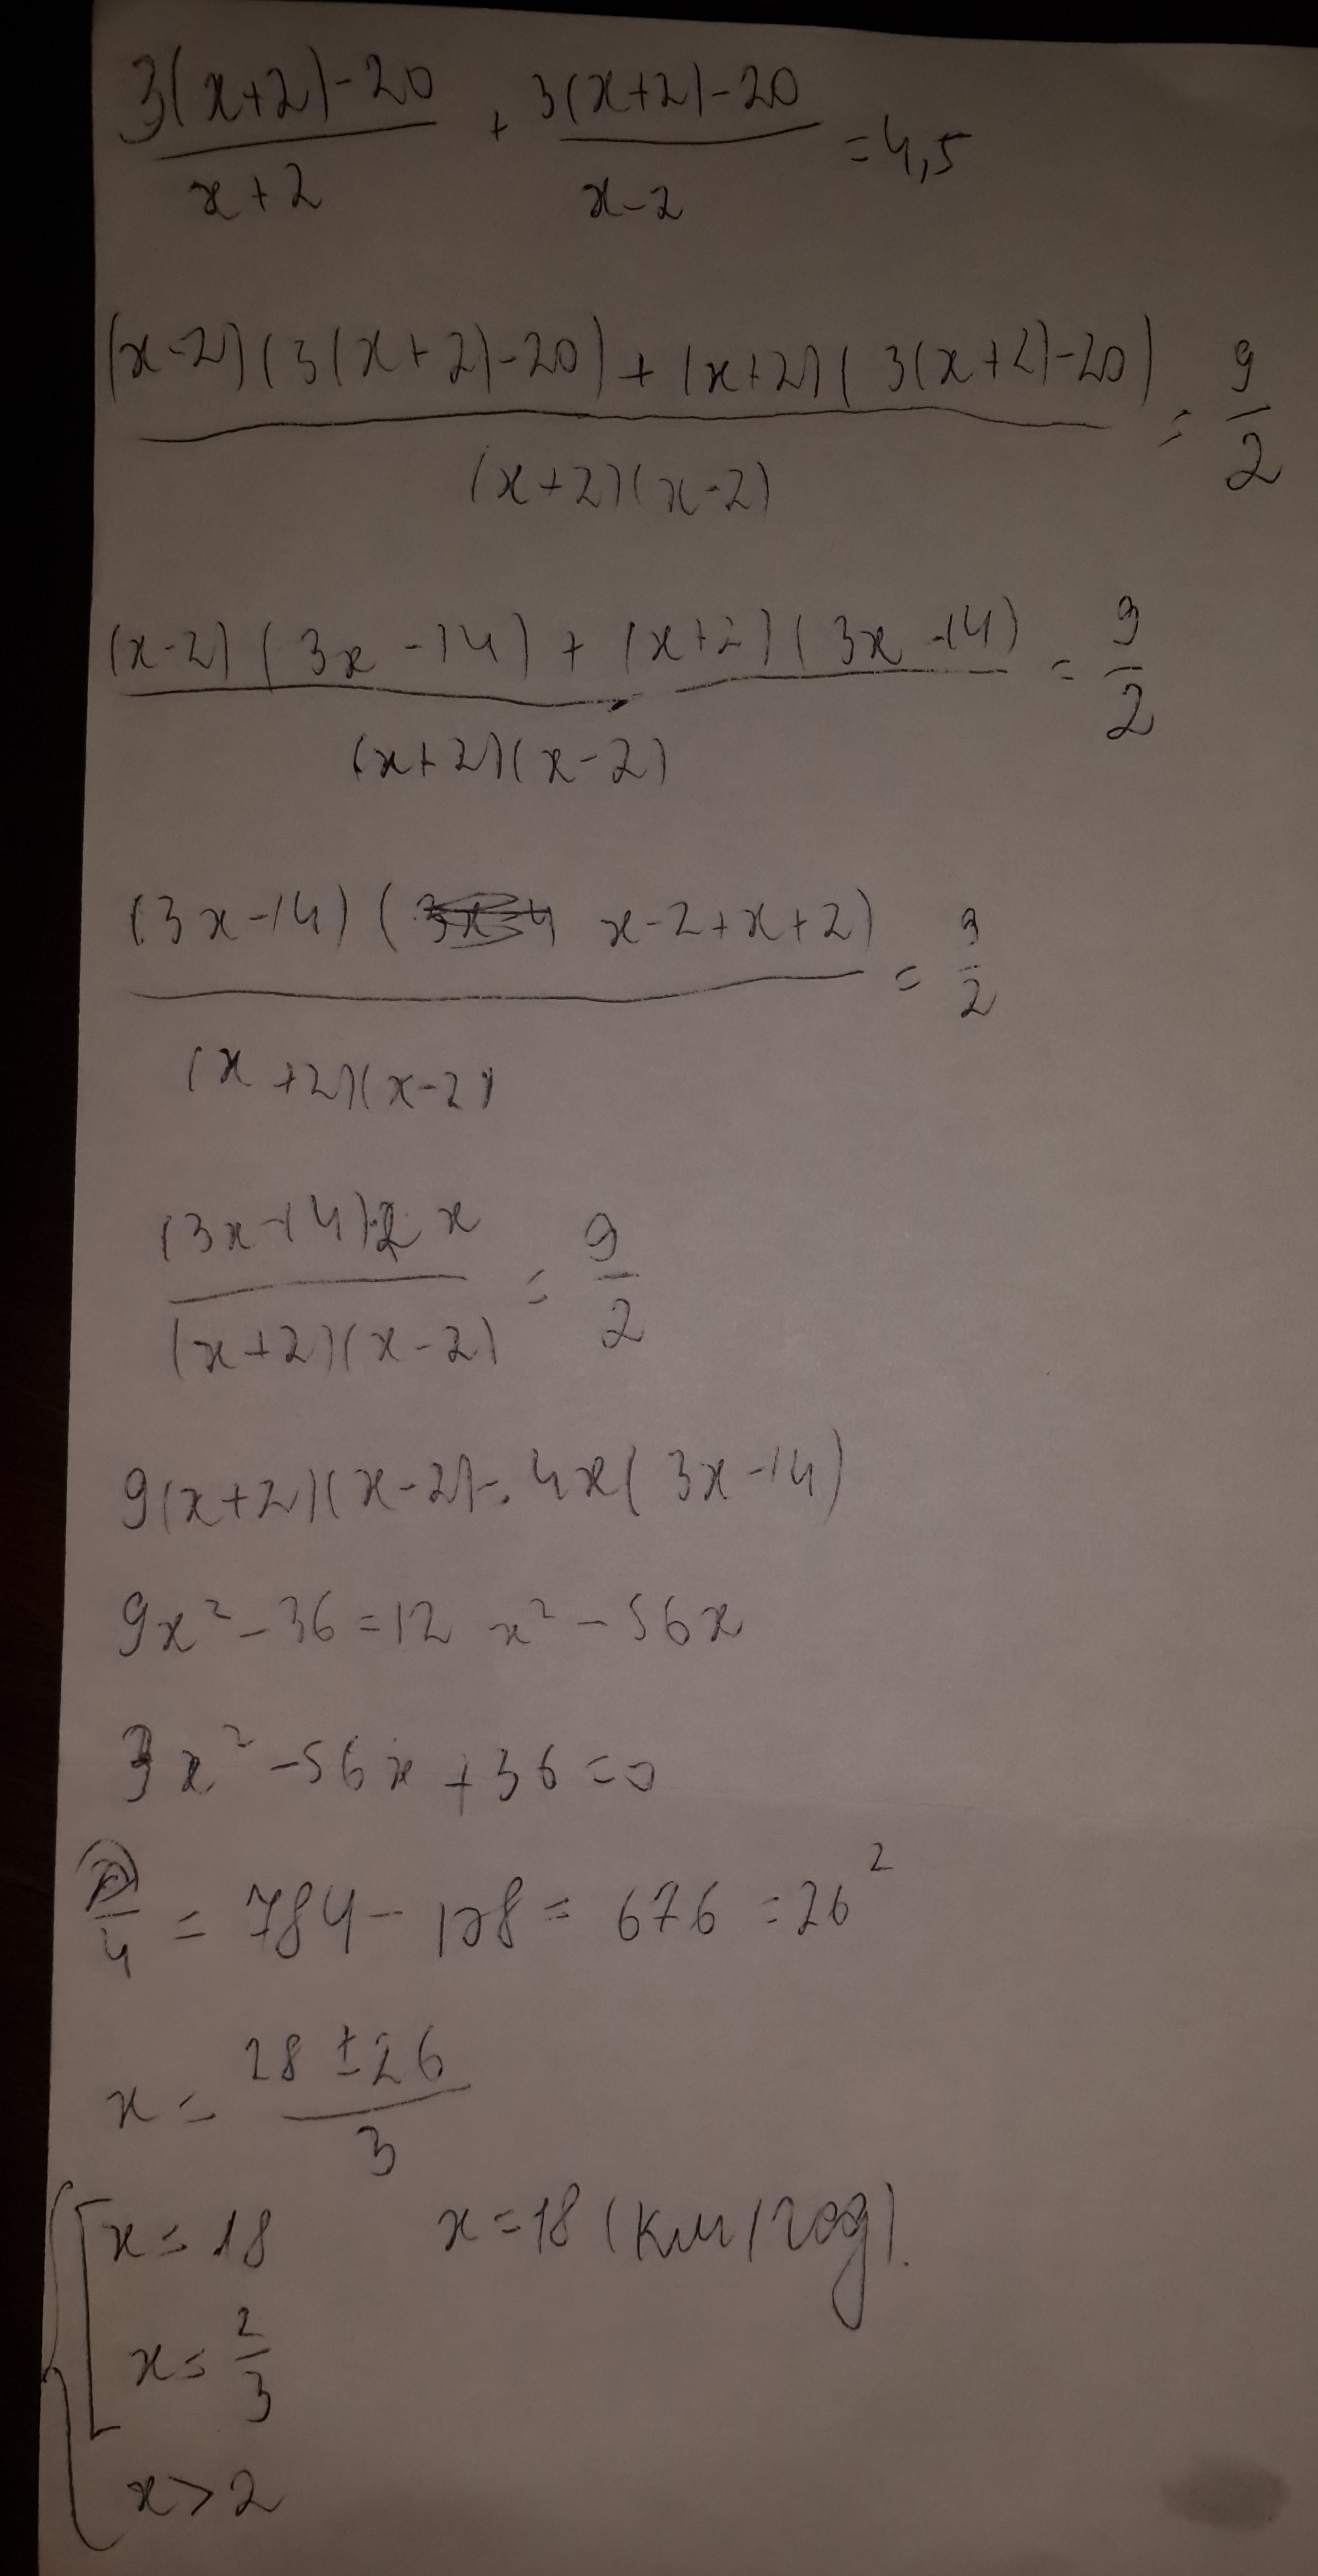 3(x+2)-20 / x+2 + 3(x+2)-20 / x-2 = 4,5
(x-2)(3(x+2)-20) + (x+2)(3(x+2)-20) / (x+2)(x-2) = 9/2
(x-2)(3x-14) + (x+2)(3x-14) / (x+2)(x-2) = 9/2
(3x-14)(x-2+x+2) / (x+2)(x-2) = 9/2
(3x-14)·2x / (x+2)(x-2) = 9/2
9(x+2)(x-2) = 4x(3x-14)
9x² - 36 = 12x² - 56x
3x² - 56x + 36 = 0
D/4 = 784 - 108 = 676 = 26²
x = 28 ± 26 / 3
x = 18 x = 18 (км/год).
x = 2/3
x > 2